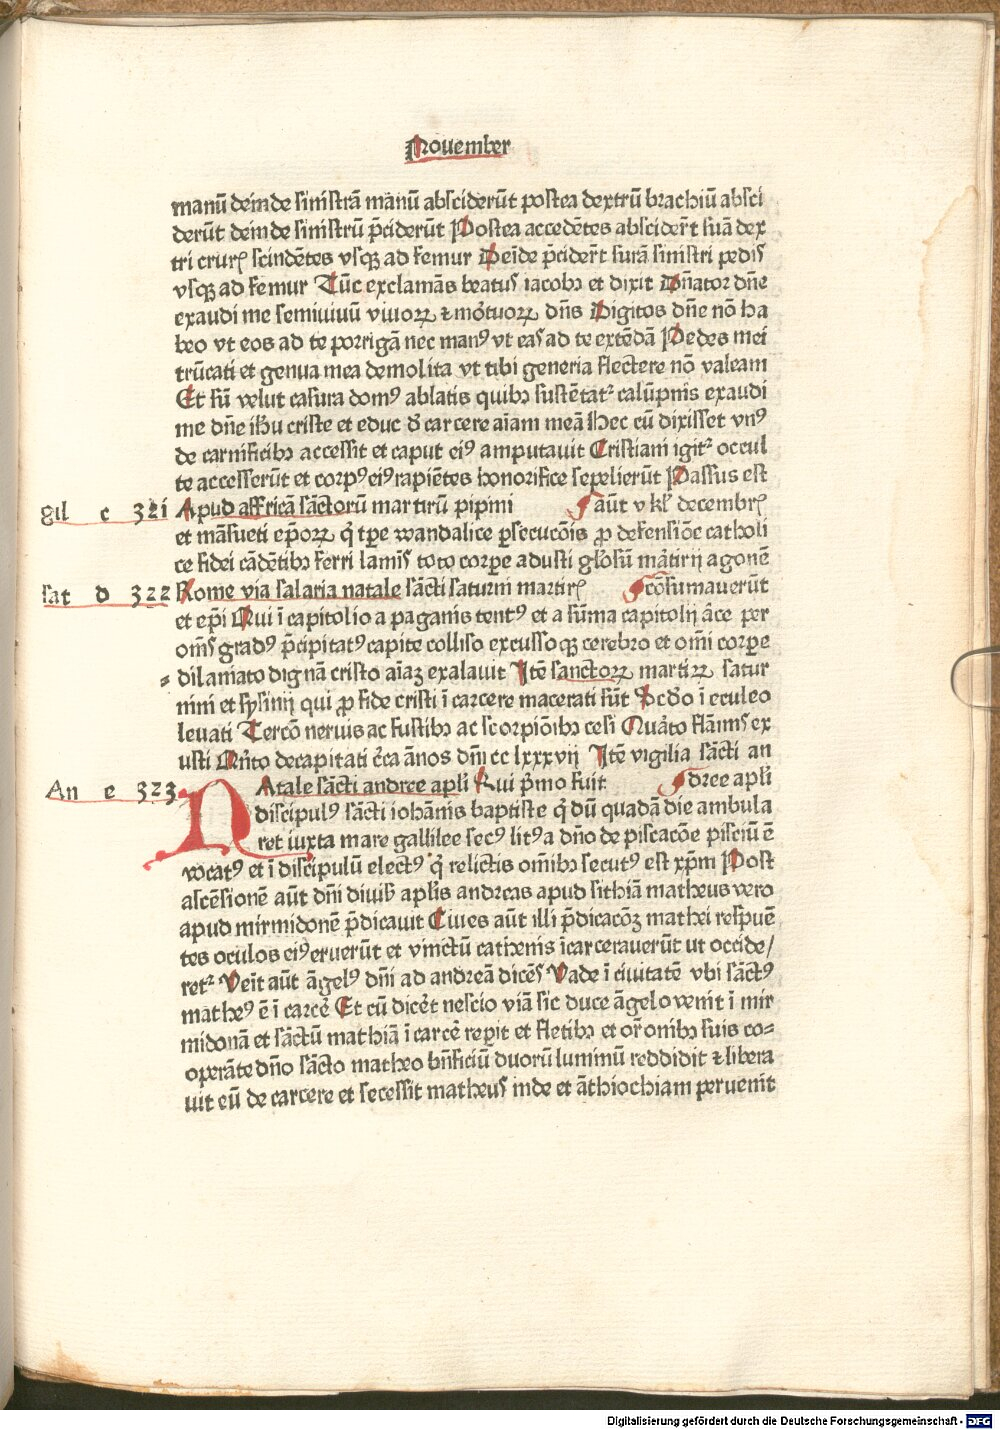 Nouember
manū deinde sinistrā manū absciderūt postea dextrū brachiū absci
derūt deinde sinistrū p̄ciderūt Postea accedētes absciderūt suā dex
tri crurꝭ scindētes vsqꝫ ad femur Deīde p̄ciderūt surā sinistri pedis
vsqꝫ ad femur Tūc exclamās beatus iacobꝫ et dixit Dn̄ator dn̄e
exaudi me semiuiuū viuoꝝ ⁊ mortuoꝝ dn̄s Digitos dn̄e nō ha
beo vt eos ad te porrigā nec manꝰ vt eas ad te extēdā Pedes mei
trūcati et genua mea demolita vt tibi generia flectere nō valeam
Et sū velut casura domꝰ ablatis quibꝫ sustētatᷣ calūpnis exaudi
me dn̄e ihu criste et educ d' carcere aīam meā Hec cū dixisset vnꝰ
de carnificibꝫ accessit et caput eiꝰ amputauit Cristiani igitᷣ occul
te accesserūt et corpꝰ eiꝰ rapiētes honorifice sepelierūt Passus est
gil c 321 Apud affricā sāctorū martirū pipini aūt v kl' decembrꝭ
et māsueti ep̄oꝝ q̇ tꝑe wandalice ꝑsecucōis ꝓ defensiōe catholi
ce fidei cādētibꝫ ferri lamīs toto corꝑe adusti gl'osū mātirij agonē
sat d 322 Rome via salaria natale sācti saturni martirꝭ cōsumauerūt
et ep̄i Qui ī capitolio a paganis tentꝰ et a sūma capitolij arce per
om̄s gradꝰ p̄cipitatꝰ capite colliso excussoqꝫ cerebro et om̄i corꝑe
dilaniato dignā cristo aīaꝫ exalauit Itē sanctoꝝ martiꝝ satur
nini et sysinij qui ꝓ fide cristi ī carcere macerati sūt Scd̄o ī eculeo
leuati Tercō neruis ac fustibꝫ ac scorpiōibꝫ cesi Quarto flāmis ex
usti Qn̄to decapitati c̄ca ānos dn̄i cc lxxxvij Itē vigilia sācti an
An e 323 NAtale sācti andree apl'i Qui p̄mo fuit dree apl'i
discipulꝰ sācti iohānis baptiste q̇ dū quadā die ambula
ret iuxta mare gallilee secꝰ litꝰa dn̄o de piscacōe pisciū ē
vocatꝰ et ī discipulū electꝰ q̇ relictis om̄ibꝫ secutꝰ est xp̄m Post
ascēsionē aūt dn̄i diuis' apl'is andreas apud sithiā matheus vero
apud mirmidonē p̄dicauit Ciues aūt illi p̄dicacōꝫ mathei respuē
tes oculos eiꝰ eruerūt et vinctū cathenis īcarcerauerūt ut occide/
retᷣ Veīt aūt āgelꝰ dn̄i ad andreā dicēs Vade ī ciuitatē vbi sāctꝰ
matheꝰ ē ī carcē Et cū dicēt nescio viā sic duce āgelo venit ī mir
midonā et sāctū mathiā ī carcē reꝑit et fletibꝫ et or̄onibꝫ suis co⸗
operāte dn̄o sācto matheo bn̄ficiū duorū luminū reddidit ⁊ libera
uit eū de carcere et secessit matheus inde et āthiochiam peruenit
Digitalisierung gefördert durch die Deutsche Forschungsgemeinschaft - DFG